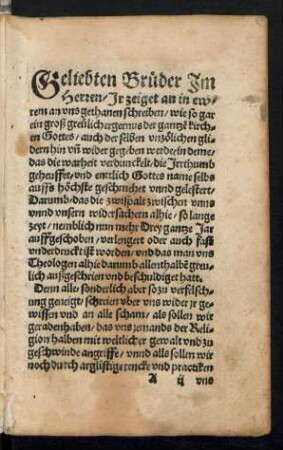 Geliebten Brüder Im
Herren/Jr zeiget an in ew-
rem an vns gethanen schreiben/wie so gar
ein groß greülich ergernus der gantzẽ kirch-
en Gottes/auch der selben vnzölichen gli-
dern hin vñ wider gegeben werde/in deme/
das die warheit verdunckelt/die Jrrthumb
geheuffet/vnd entlich Gottes name selbs
auffs höchste geschmehet vnnd gelestert/
Darumb/das die zwispalt zwischen vnns
vnnd vnsern widersachern alhie/so lange
zeyt/nemblich nun mehr Drey gantze Jar
auffgeschoben/verlengert oder auch schir
vnderdruckt ist worden/vnd das man vns
Theologen alhie darumb allenthalbẽ greu-
lich außgeschrien vnd beschuldiget hatt.
Denn alle/sonderlich aber so zu verfelsch-
ung geneigt/schreien vber vns wider jr ge-
wissen vnd an alle scham/als sollen wir
geradenhaben/das vns jemands der Reli-
gion halben mit weltlicher gewalt vnd zu
geschwinde angriffe/vnnd alls sollen wir
noch durch arglistig-rencke vnd practiken
A ij vns